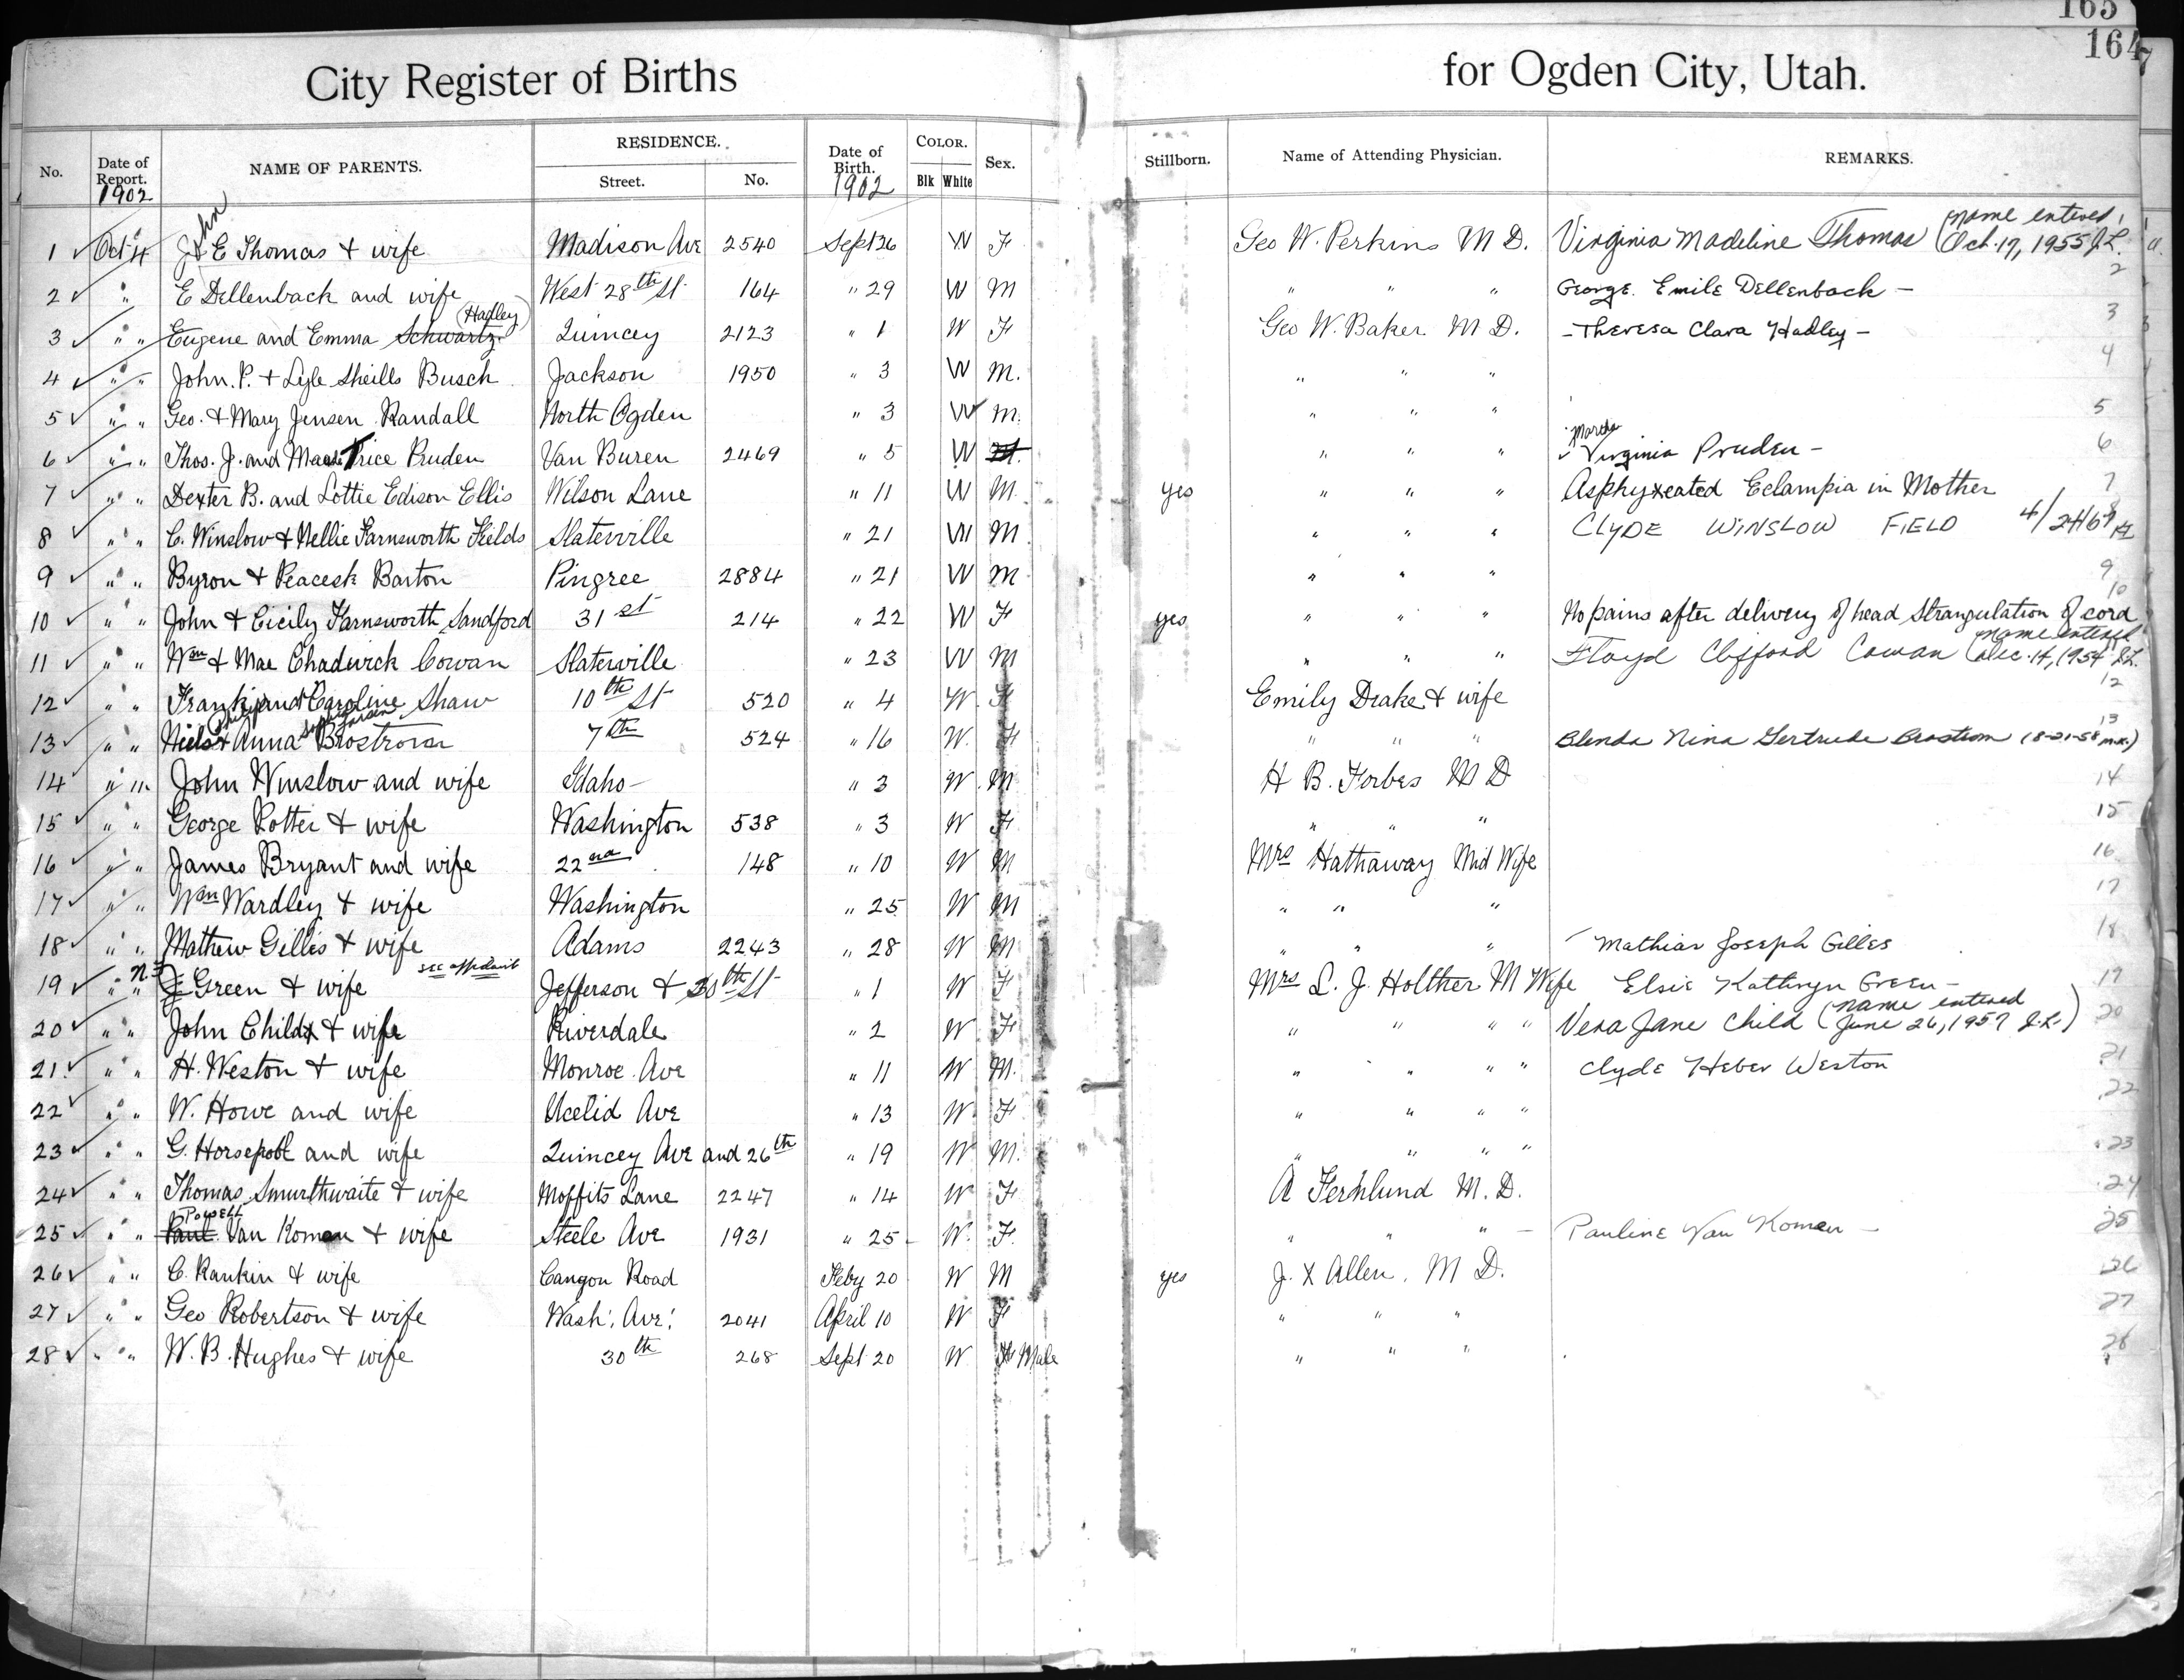 165
164
City Register of Births for Ogden City, Utah.
No. Date of Report. 1902 NAME OF PARENTS. RESIDENCE. Street. No. Date of Birth. 1902 COLOR. Blk White Sex. Stillborn. Name of Attending Physician. REMARKS.
1 Oct 4 John E Thomas + wife Madison Ave 2540 Sept 26 W F Geo W. Perkins M D. Virginia Madeline Thomas (name entered Oct. 17, 1955 J.L.
2 " E Dellenback and wife West 28th St 164 " 29 W M " " " George Emile Dellenback - 2
3 " " Eugene and Emma Schwartz (Hadley) Quincey 2123 " 1 W F Geo W. Baker M D. - Theresa Clara Hadley - 3
4 " " John. P. + Lyle Sheills Busch Jackson 1950 " 3 W M. " " " 4
5 " " Geo. + Mary Jensen Randall North Ogden " 3 W M. " " " 5
6 " " Thos. J. and Price Pruden Van Buren 2469 " 5 W " " " Martha Virginia Pruden - 6
7 " " Dexter B. and Lottie Edison Ellis Wilson Lane " 11 W M yes " " " Asphyxeated Eclampia in Mother 7
8 " " C. Winslow + Nellie Farnsworth Fields Slaterville " 21 W M " " " CLYDE WINSLOW FIELD 4/24/67
9 " " Byron + Peacesk Barton Pingree 2884 " 21 W M " " " 9
10 " " John + Cicily Farnsworth Sandford 31 st 214 " 22 W F yes " " " No pains after delivery of head Strangulation of cord 10
11 " " Wm + Mae Chadwick Cowan Slaterville " 23 W M " " " Floyd Clifford Cowan (name entered Dec. 14, 1954 J.L.
12 " " Frank and Caroline Shaw 10th St 520 " 4 W. F Emily Drake + wife 12
13 " " Niels + Anna Brostrom 7th 524 " 16 W. F " " " Blenda Nina Gertrude Brostrom (8-21-58 m.x.) 13
14 " " John Winslow and wife Idaho - " 3 W. M H B. Forbes M D 14
15 " " George Potter + wife Washington 538 " 3 W F " " " 15
16 " " James Bryant and wife 22nd 148 " 10 W M Mrs Hathaway Mid Wife 16
17 " " Wm Wardley + wife Washington " 25 W M " " " 17
18 " " Mathew Gillis + wife Adams 2243 " 28 W M " " " Mathias Joseph Gilles 18
19 " " Green + wife see affidavit Jefferson + 30th St " 1 W F Mrs L. J. Holther M Wife Elsie Kathryn Green - 19
20 " " John Child + wife Riverdale " 2 W F " " " " Vera Jane Child (name entered June 26, 1957 J.L.) 20
21 " " H. Weston + wife Monroe Ave " 11 W M. " " " " Clyde Heber Weston 21
22 " " W. Howe and wife Ucelid Ave " 13 W F " " " " 22
23 " " G. Horsepool and wife Quincey Ave and 26th " 19 W M. " " " " 23
24 " " Thomas Smurthwaite + wife Moffits Lane 2247 " 14 W F A Fernlund M. D. 24
25 " " Paul Powell Van Komen + wife Steele Ave 1931 " 25 W. F. " " " - Pauline Van Komen - 25
26 " " C. Rankin + wife Canyon Road Feby 20 W M yes J. X Allen, M D. 26
27 " " Geo Robertson + wife Wash: Ave: 2041 April 10 W F " " " 27
28 " " W. B. Hughes + wife 30th 268 Sept 20 W Male " " " 28